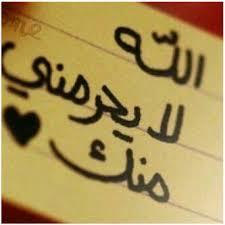 الله
لا يحرمني
منك